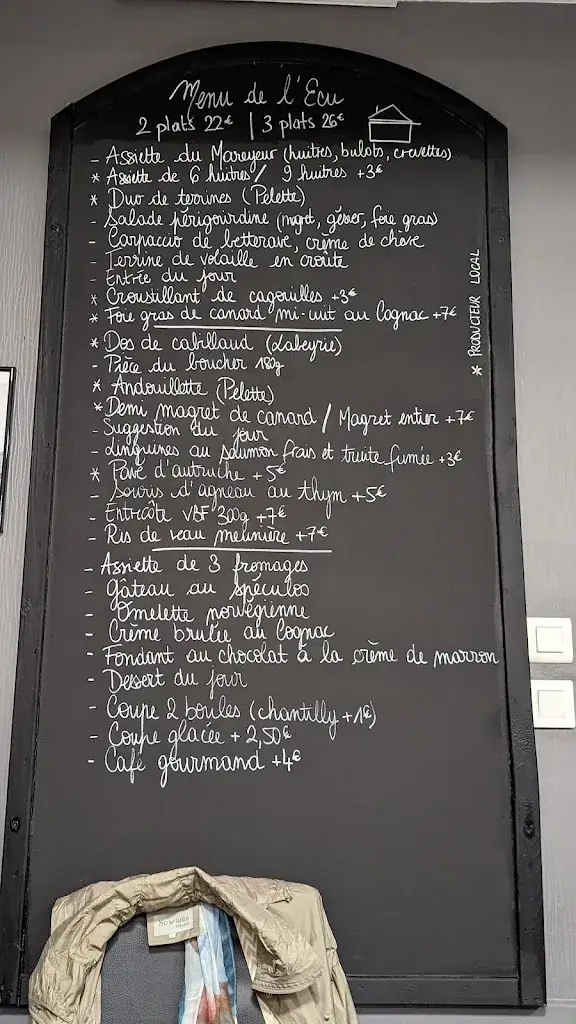 Menu de l'Ecu
2 plats 22€ | 3 plats 26€
- Assiette du Mareyeur (huîtres, bulots, crevettes)
* Assiette de 6 huîtres / 9 huîtres +3€
* Duo de terrines (Pelette)
- Salade périgourdine (magret, gésier, foie gras)
- Carpaccio de betterave, crème de chèvre
- Terrine de volaille en croûte
- Entrée du jour
* Croustillant de cagouilles +3€
* Foie gras de canard mi-cuit au Cognac +7€
* PRODUCTEUR LOCAL
* Dos de cabillaud (Labeyrie)
- Pièce du boucher 180g
* Andouillette (Pelette)
* Demi magret de canard / Magret entier +7€
- Suggestion du jour
- Linguines au saumon frais et truite fumée +3€
* Pavé d'autruche +5€
- Souris d'agneau au thym +5€
- Entrecôte VBF 300g +7€
- Ris de veau meunière +7€
- Assiette de 3 fromages
- Gâteau au spéculos
- Omelette norvégienne
- Crème brulée au Cognac
- Fondant au chocolat à la crème de marron
- Dessert du jour
- Coupe 2 boules (chantilly +1€)
- Coupe glacée +2,50€
- Café gourmand +4€